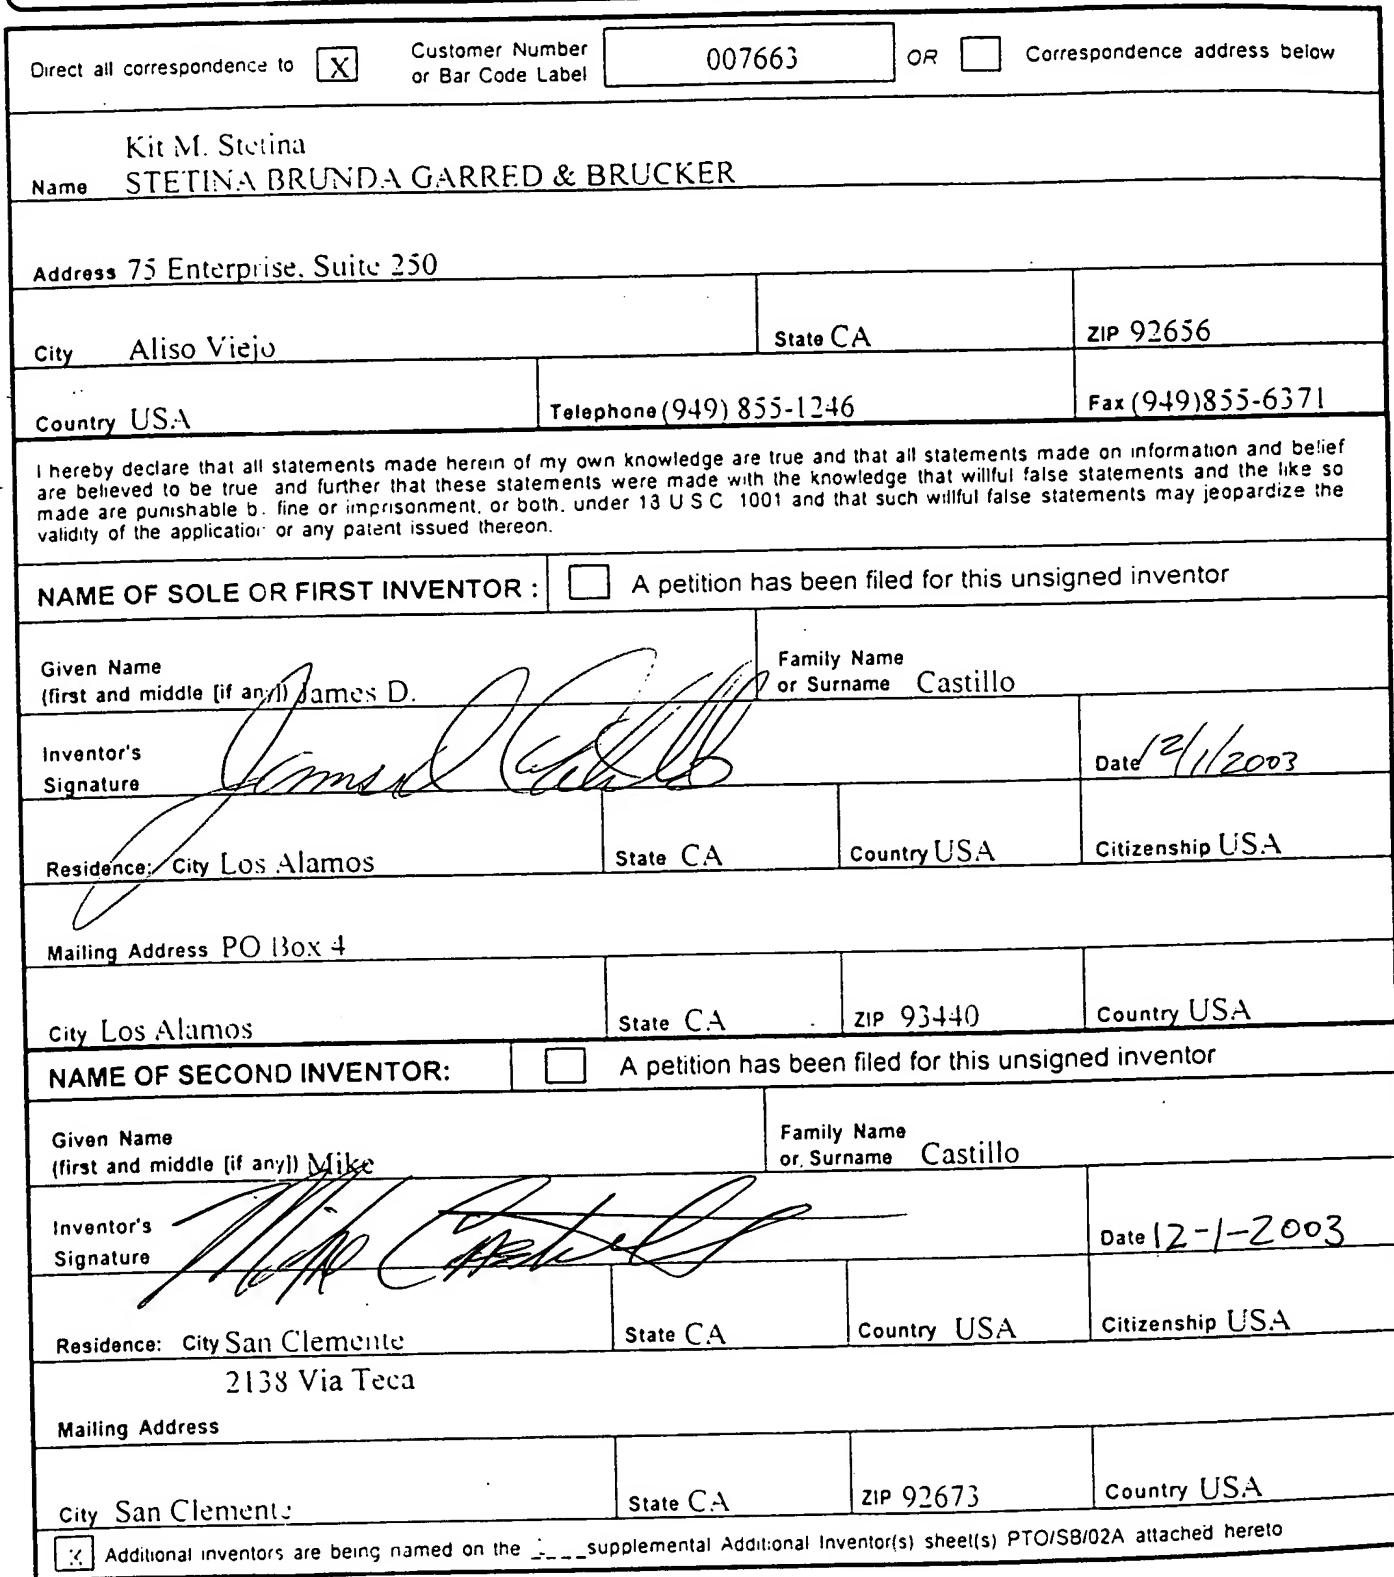 Direct all correspondence to [X] Customer Number or Bar Code Label 007663 OR Correspondence address below
Kit M. Stetina
Name STETINA BRUNDA GARRED & BRUCKER
Address 75 Enterprise, Suite 250
City Aliso Viejo State CA ZIP 92656
Country USA Telephone (949) 855-1246 Fax (949)855-6371
I hereby declare that all statements made herein of my own knowledge are true and that all statements made on information and belief
are believed to be true and further that these statements were made with the knowledge that willful false statements and the like so
made are punishable b. fine or imprisonment, or both, under 13 U S C 1001 and that such willful false statements may jeopardize the
validity of the application or any patent issued thereon.
NAME OF SOLE OR FIRST INVENTOR : A petition has been filed for this unsigned inventor
Given Name
(first and middle [if any]) James D.
Family Name
or Surname Castillo
Inventor's
Signature James D Castillo
Date 12/1/2003
Residence: City Los Alamos State CA Country USA Citizenship USA
Mailing Address PO Box 4
City Los Alamos State CA ZIP 93440 Country USA
NAME OF SECOND INVENTOR: A petition has been filed for this unsigned inventor
Given Name
(first and middle [if any]) Mike
Family Name
or Surname Castillo
Inventor's
Signature Mike Castillo
Date 12-1-2003
Residence: City San Clemente State CA Country USA Citizenship USA
2138 Via Teca
Mailing Address
City San Clemente State CA ZIP 92673 Country USA
[X] Additional inventors are being named on the supplemental Additional Inventor(s) sheet(s) PTO/SB/02A attached hereto